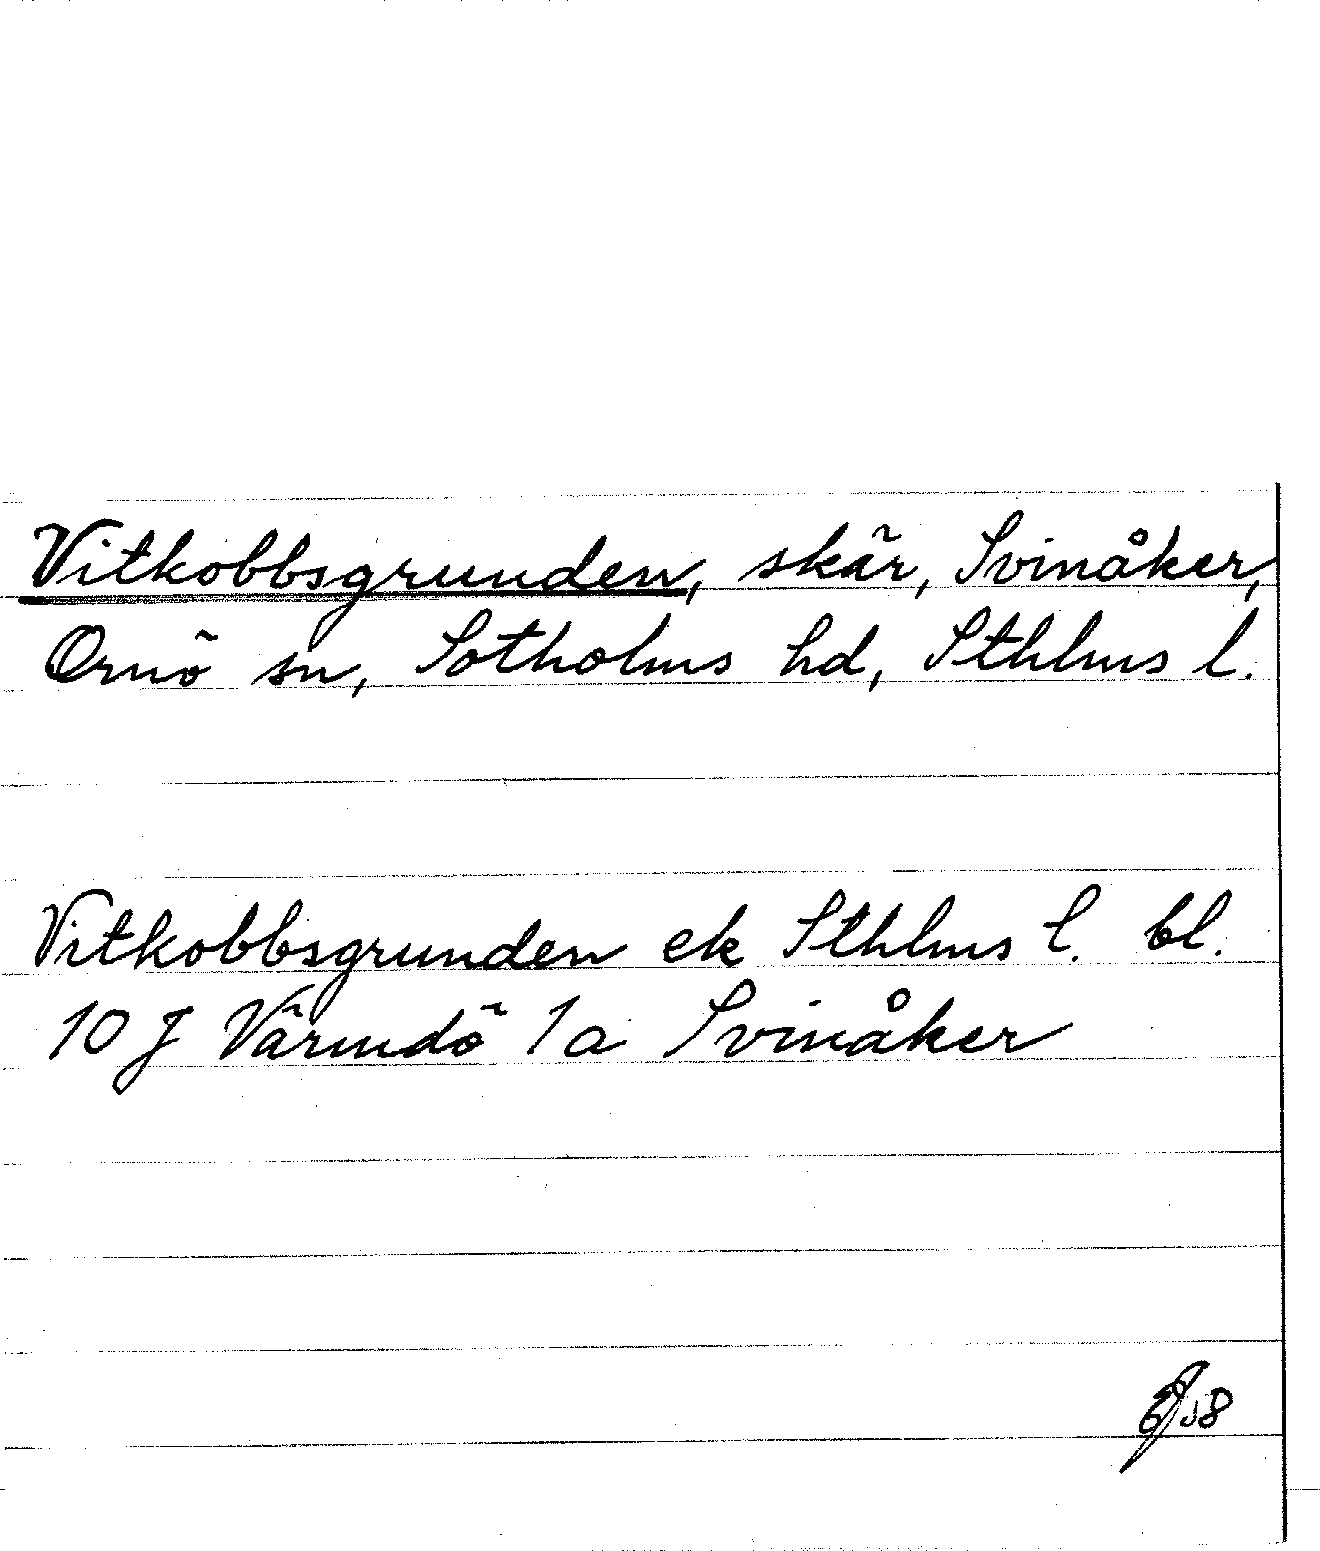 Vitkobbsgrunden, skär, Svinåker,
Ornö sn, Sotholms hd, Sthlms l.
Vitkobbsgrunden ek Sthlms l. bl.
10 J Värmdö 1a Svinåker